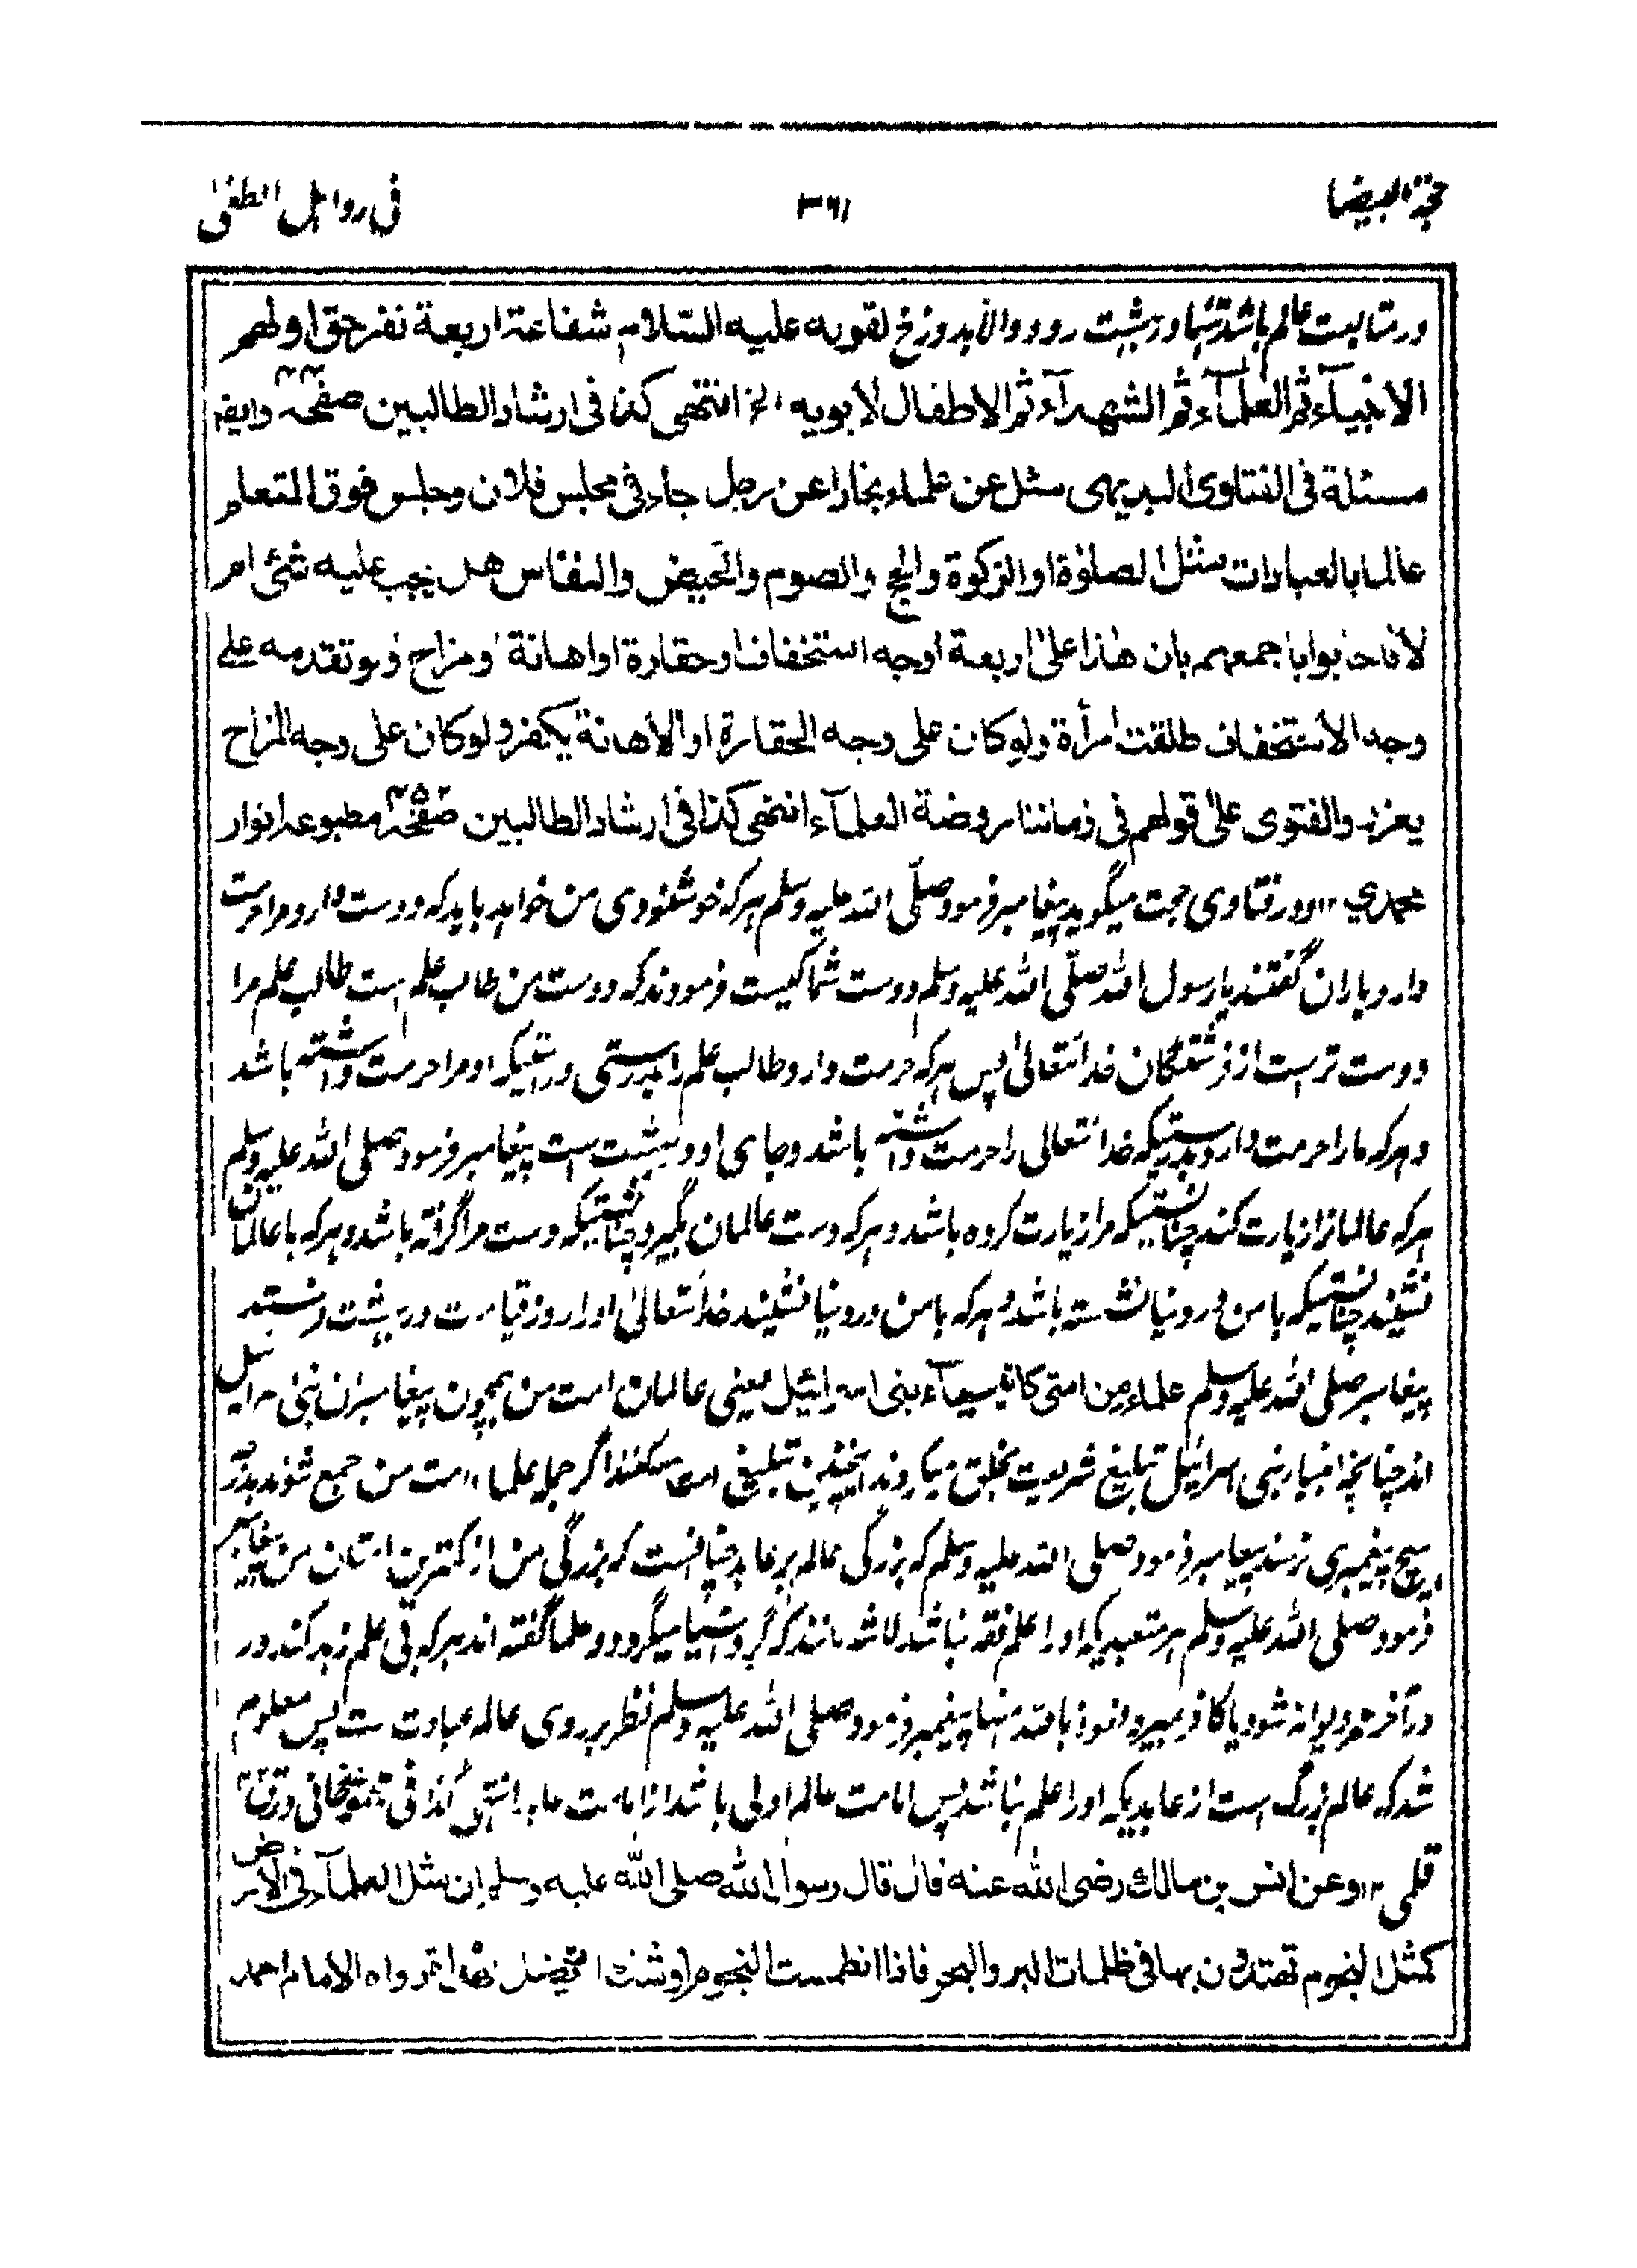 حجة البيضا
٣٦١
فى
در متابعت عالم باشد تنها در بهشت رود والا بدوزخ لقوله عليه السّلام شفاعة اربعة نفر حق اولهم
الانبيآء ثم العلمآء ثم الشهدآء ثم الاطفال لابويه الخ انتهى كذا فى ارشاد الطالبين صفحه وايضا
مسئلة فى الفتاوى سئل عن علماء بخارا عن رجل جاء فى مجلس فلان وجلس فوق المتعلم
عالما بالعبارات مثل الصلوٰة او الزكوة والحج والصوم والحيض والنفاس هل يجب عليه شئى ام
لا فاجابوا باجمعهم بان هٰذا علىٰ اربعة اوجه استخفاف او حقارة او اهانة او مزاح ولو تقدمه على
وجه الاستخفاف طلقت امرأة ولو كان على وجه الحقارة او الاهانة يكفر ولو كان على وجه المزاح
يعزر والفتوى علىٰ قولهم فى زماننا روضة العلمآء انتهى كذا فى ارشاد الطالبين صفحه مطبوعه انوار
محمدي ١٢ ودر فتاوى حجت ميگويد پيغامبر فرمود صلّى الله عليه وسلم هركه خوشنودى من خواهد بايد كه دوست دارد مرا دوست
دارد ياران گفتند يا رسول الله صلّى الله عليه وسلم دوست شما كيست فرمودند كه دوست من طالب علم است طالب علم مرا
دوست تر است از فرشتگان خدا تعالىٰ پس هركه حرمت دارد طالب علم را بدرستى ورا ستيكه او مرا حرمت داشته باشد
و هركه ما را حرمت دارد بدرستيكه خدا تعالى را حرمت داشته باشد و جاى او در بهشت است پيغامبر فرمود صلى الله عليه وسلم
هركه عالمانرا زيارت كند چنانستيكه مرا زيارت كرده باشد و هركه دست عالمان بگيرد چنانستيكه دست مرا گرفته باشد و هركه با عالمان
نشيند چنانستيكه با من در دنيا نشسته باشد و هركه با من در دنيا نشيند خدا تعالىٰ او را روز قيامت در بهشت فرستد
پيغامبر صلى الله عليه وسلم علماء من امتى كانبيآء بنى اسرائيل يعنى عالمان امت من همچون پيغامبران بنى اسرائيل
اند چنانچه انبيا بنى اسرائيل تبليغ شريعت بخلق ميكردند اينچنين تبليغ امت ميكنند اگر جملہ علماء امت من جمع شوند
هيچ پيغمبرى نرسند پيغامبر فرمود صلى الله عليه وسلم كه بزرگى عالم بر عابد چنانست كه بزرگى من از كمترين امتان من پيغامبر
فرمود صلى الله عليه وسلم هر متعبديكه او را علم فقه نباشد مانند كه گرد آسيا ميگردد و علما گفته اند هركه بى علم زهد كند در
در آخر عمر ديوانه شود يا كافر ميرد نعوذ بالله منها پيغمبر فرمود صلى الله عليه وسلم نظر بر روى عالم عبادت ست پس معلوم
شد كه عالم بزرگ است از عابديكه او را علم نباشد پس امامت عالم اولى باشد از امامت عابد انتهى كذا فى
قلمى ١٢ وعن انس بن مالك رضى الله عنه قال قال رسول الله صلى الله عليه وسلم ان مثل العلمآء فى الارض
كمثل النجوم تهتدون بها فى ظلمات البر والبحر فاذا انطمست النجوم اوشك ان تضل رواه الامام احمد